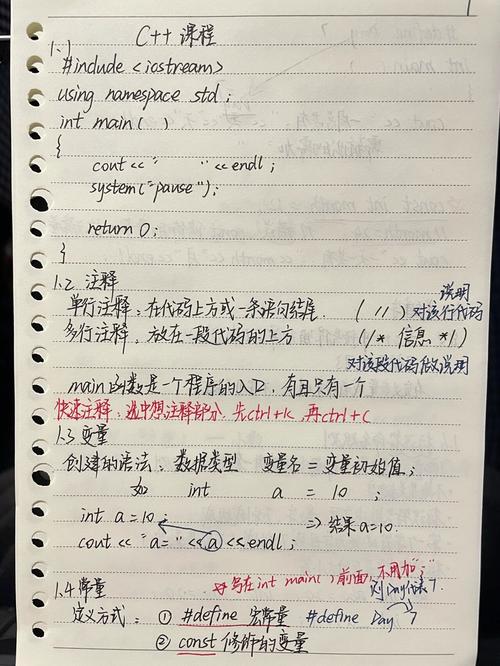 C++ 课程
1.1
#include <iostream>
using namespace std;
int main( )
{
cout << "      " << endl;
system("pause");
return 0;
{
1.2 注释
单行注释：在代码上方或一条语句结尾. ( // ) 对该行代码说明
多行注释，放在一段代码的上方 (/* 信息 */)
对该段代码做说明
main函数是一个程序的入口，有且只有一个
快速注释：选中想注释部分，先ctrl+k，再ctrl+c
1.3 变量
创建的语法：数据类型 变量名 = 变量初始值；
如 int a = 10 ;
int a=10; => 结果a=10.
cout << "a=" << a << endl;
→写在int main( )前面，不用加";"
1.4 常量
对Day代表7.
定义方式：① #define 宏常量 #define Day 7
② const 修饰的变量